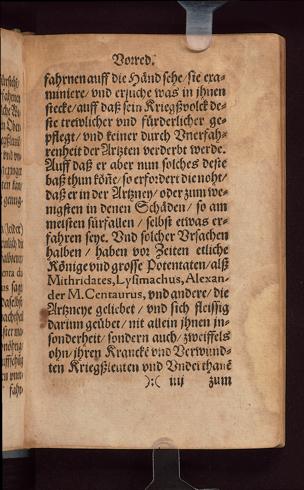 Vorred.
fahrnen auff die Händ sehe / sie exa-
miniere / vnd ersuche was in ihnen
stecke / auff daß sein Kriegßvolck de-
ste trewlicher vnd fürderlicher ge-
pflegt / vnd keiner durch Vnerfah-
renheit der Artzten verderbt werde.
Auff daß er aber nun solches deste
baß thun köñe / so erfordert die noht /
daß er in der Artzney / oder zum we-
nigsten in denen Schäden / so am
meisten fürfallen / selbst etwas er-
fahren seye. Vnd solcher Vrsachen
halben / haben vor Zeiten etliche
Könige vnd grosse Potentaten / alß
Mithridates, Lysimachus, Alexan-
der M. Centaurus, vnd andere / die
Artzneye geliebet / vnd sich fleissig
darinn geübet / nit allein jhnen in-
sonderheit / sondern auch / zweiffels
ohn / jhren Krancke͂ vnd Verwund-
ten Kriegßleuten vnd Vnderthane͂
):( iiij zum